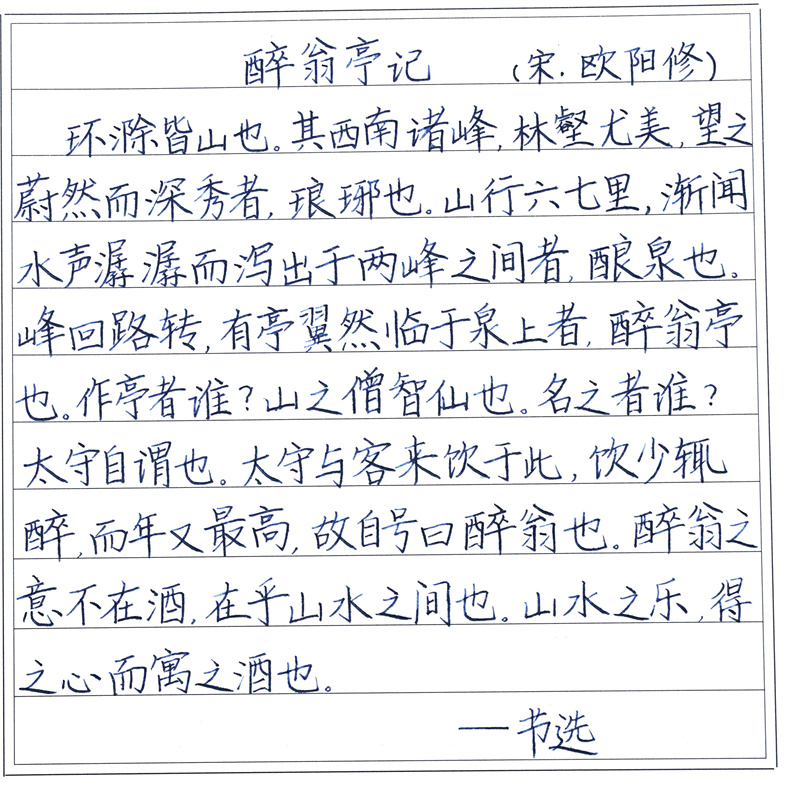 醉翁亭记 （宋.欧阳修）
环滁皆山也。其西南诸峰,林壑尤美,望之
蔚然而深秀者,琅琊也。山行六七里,渐闻
水声潺潺而泻出于两峰之间者,酿泉也。
峰回路转,有亭翼然临于泉上者,醉翁亭
也。作亭者谁?山之僧智仙也。名之者谁?
太守自谓也。太守与客来饮于此,饮少辄
醉,而年又最高,故自号曰醉翁也。醉翁之
意不在酒,在乎山水之间也。山水之乐,得
之心而寓之酒也。
——节选